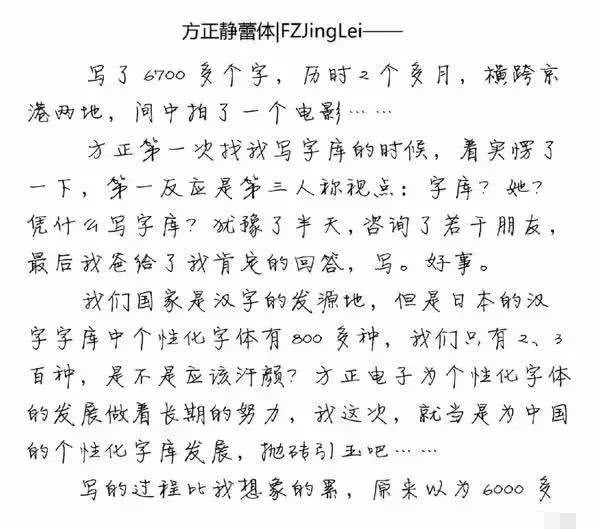 方正静蕾体|FZJingLei——
写了6700多个字，历时2个多月，横跨京
港两地，间中拍了一个电影……
方正第一次找我写字库的时候，着实愣了
一下，第一反应是第三人称视点：字库？她？
凭什么写字库？犹豫了半天，咨询了若干朋友，
最后我爸给了我肯定的回答，写。好事。
我们国家是汉字的发源地，但是日本的汉
字字库中个性化字体有800多种，我们只有2、3
百种，是不是应该汗颜？方正电子为个性化字体
的发展做着长期的努力，我这次，就当是为中国
的个性化字库发展，抛砖引玉吧……
写的过程比我想象的累，原来以为6000多